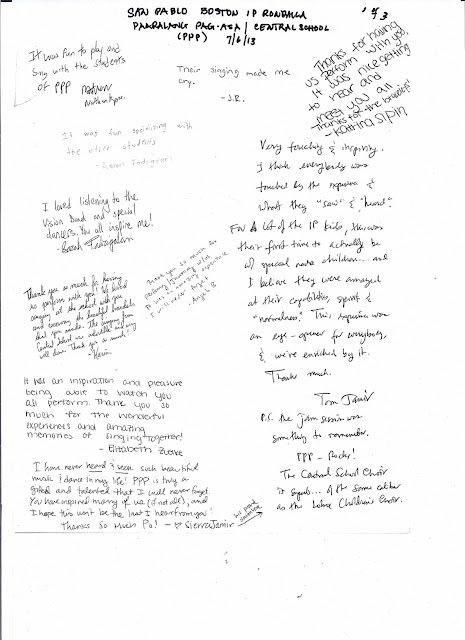 SAN PABLO BOSTON IP RONDALLA
PAARALANG PAG-ASA / CENTRAL SCHOOL
(PPP) 7/6/13
'5/3
It was fun to play and
sing with the students
of PPP
Their singing made me
cry.
- J.R.
Thanks for having
us perform with you,
It was nice getting
to hear and
meet you all
Thanks for the bracelets!
- Katrina Sipin
It was fun socializing with
the other students
I loved listening to the
Vision Band and special
dancers. You all inspire me!
- Sarah
Very touching & inspiring.
I think everybody was
touched by the experience &
what they "saw" & "heard".
For A lot of the IP kids, this was
their first time to actually be
w/ special needs children... and
I believe they were amazed
at their capabilities, spirit &
"normalness". This experience was
an eye-opener for everybody,
& we're enriched by it.
Thanks much.
Tom Jamir
P.S. the jam session was
something to remember.
PPP - Rocks!
The Central School Choir
is superb... of the same caliber
as the Children's Choir.
Thank you so much for having
us perform with you! We loved
singing at the school with you
and receiving the beautiful bracelets
that you made. The singing from
Central School was incredible and very
well done. Thank you so much!
- Kevin
Thank you so much for
- Angel B.
It was an inspiration and pleasure
being able to watch you
all perform. Thank you so
much for the wonderful
experiences and amazing
memories of singing together!
- Elizabeth
I have never heard & seen such beautiful
music & dance in my life! PPP is truly a
gifted and talented that I will never forget.
You have inspired many of us (if not all), and
I hope this won't be the last I hear from you!
Thanks So Much Po! - ♡ Sierra Jamir